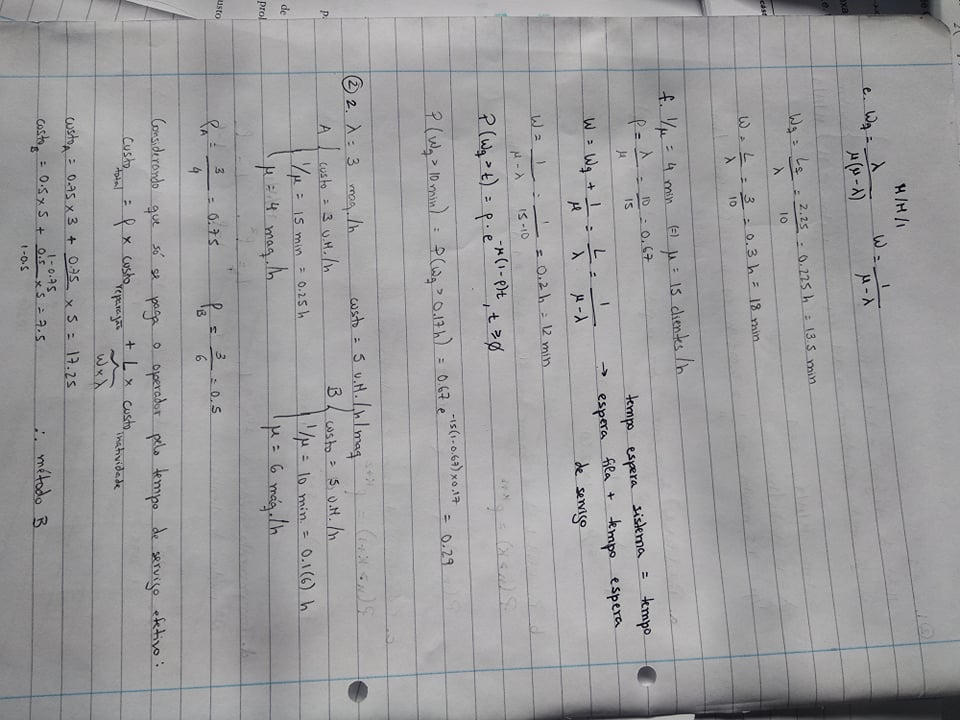 M/M/1
e. Wq = λ/(μ(μ-λ))   W = 1/(μ-λ)
Wq = Lq/λ = 2.25/10 = 0.225 h = 13.5 min
W = L/λ = 3/10 = 0.3 h = 18 min
f. 1/μ = 4 min (=) μ = 15 clientes/h
ρ = λ/μ = 10/15 = 0.67
W = Wq + 1/μ = L/λ = 1/(μ-λ) → tempo espera sistema = tempo
espera fila + tempo espera
de serviço
W = 1/(μ-λ) = 1/(15-10) = 0.2 h = 12 min
P(Wq > t) = ρ · e^(-μ(1-ρ)t), t ≥ 0
P(Wq > 10 min) = P(Wq > 0.17h) = 0.67 e^(-15(1-0.67)×0.17) = 0.29
② 2. λ = 3 maq./h   custo = 5 U.M./h/maq
A { custo = 3 U.M./h   B { custo = 5 U.M./h
1/μ = 15 min = 0.25 h   1/μ = 10 min. = 0.1(6) h
μ = 4 maq./h   μ = 6 máq./h
ρA = 3/4 = 0.75   ρB = 3/6 = 0.5
Considerando que só se paga o operador pelo tempo de serviço efetivo:
Custo total = ρ × custo reparação + L × custo inatividade
W×λ
custoA = 0.75 × 3 + 0.75/(1-0.75) × 5 = 17.25
custoB = 0.5 × 5 + 0.5/(1-0.5) × 5 = 7.5   ∴ método B
p.
de
prol
usto